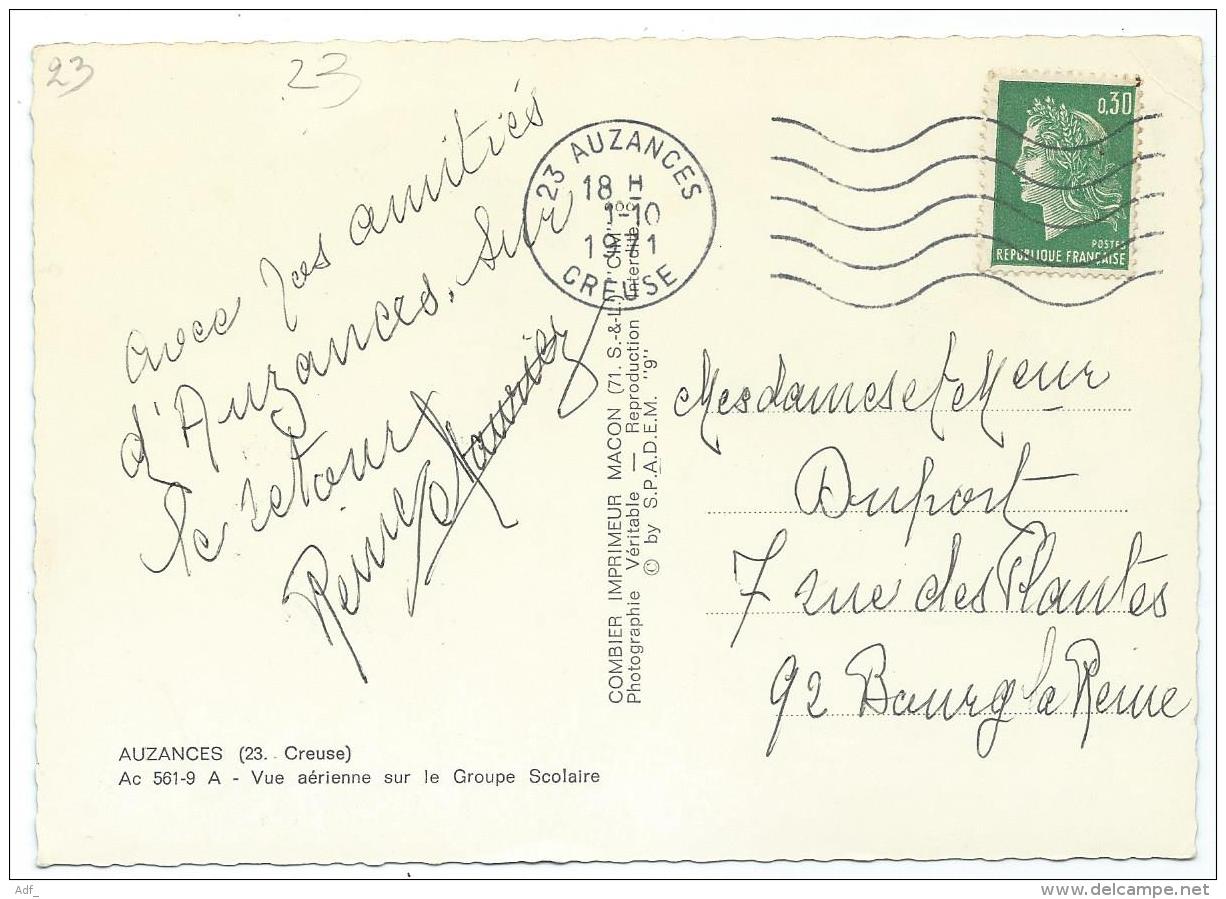 23
23
avec mes amitiés
d'Auzances. Sur
le retour
23 AUZANCES
18 H
1-10
1971
CREUSE
0,30
POSTES
REPUBLIQUE FRANÇAISE
COMBIER IMPRIMEUR MACON (71. S.-&-L.) "CIM"
Photographie Véritable — Reproduction interdite
© by S.P.A.D.E.M. "9"
Mesdames et Meur
Duport
7 rue des Plantes
92 Bourg la Reine
AUZANCES (23. - Creuse)
Ac 561-9 A - Vue aérienne sur le Groupe Scolaire
Adf_
www.delcampe.net